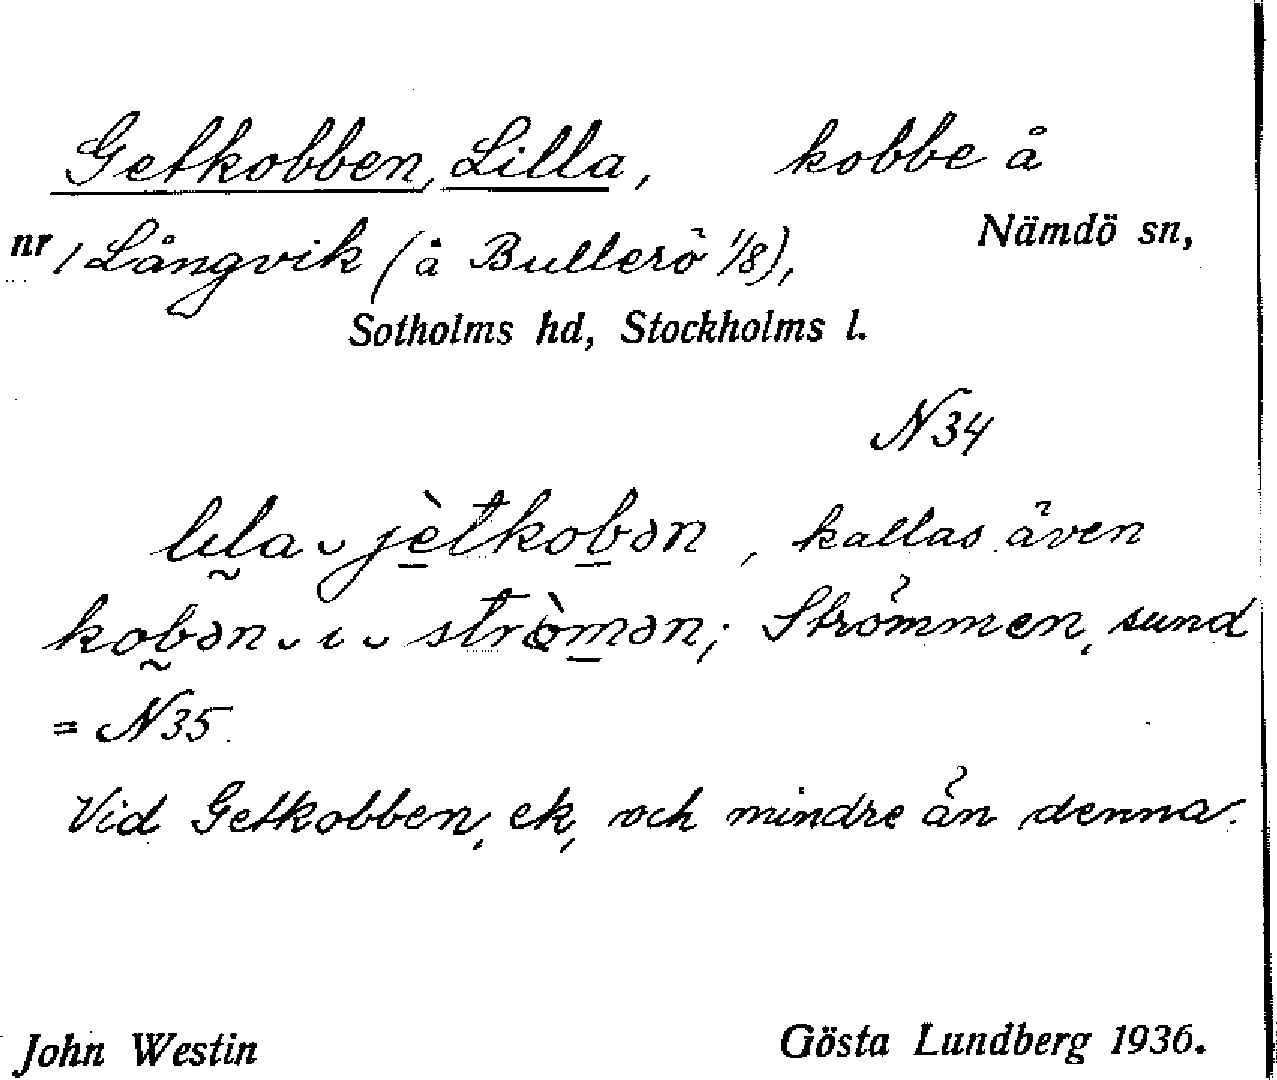 Getkobben, Lilla, kobbe å
nr 1 Långvik (å Bullerö 1/8), Nämdö sn,
Sotholms hd, Stockholms l.
N34
lɩla‿jètkobən, kallas även
kobən‿ɩ‿stròmən; Strömmen, sund
= N35.
Vid Getkobben, ek, och mindre än denna.
John Westin Gösta Lundberg 1936.